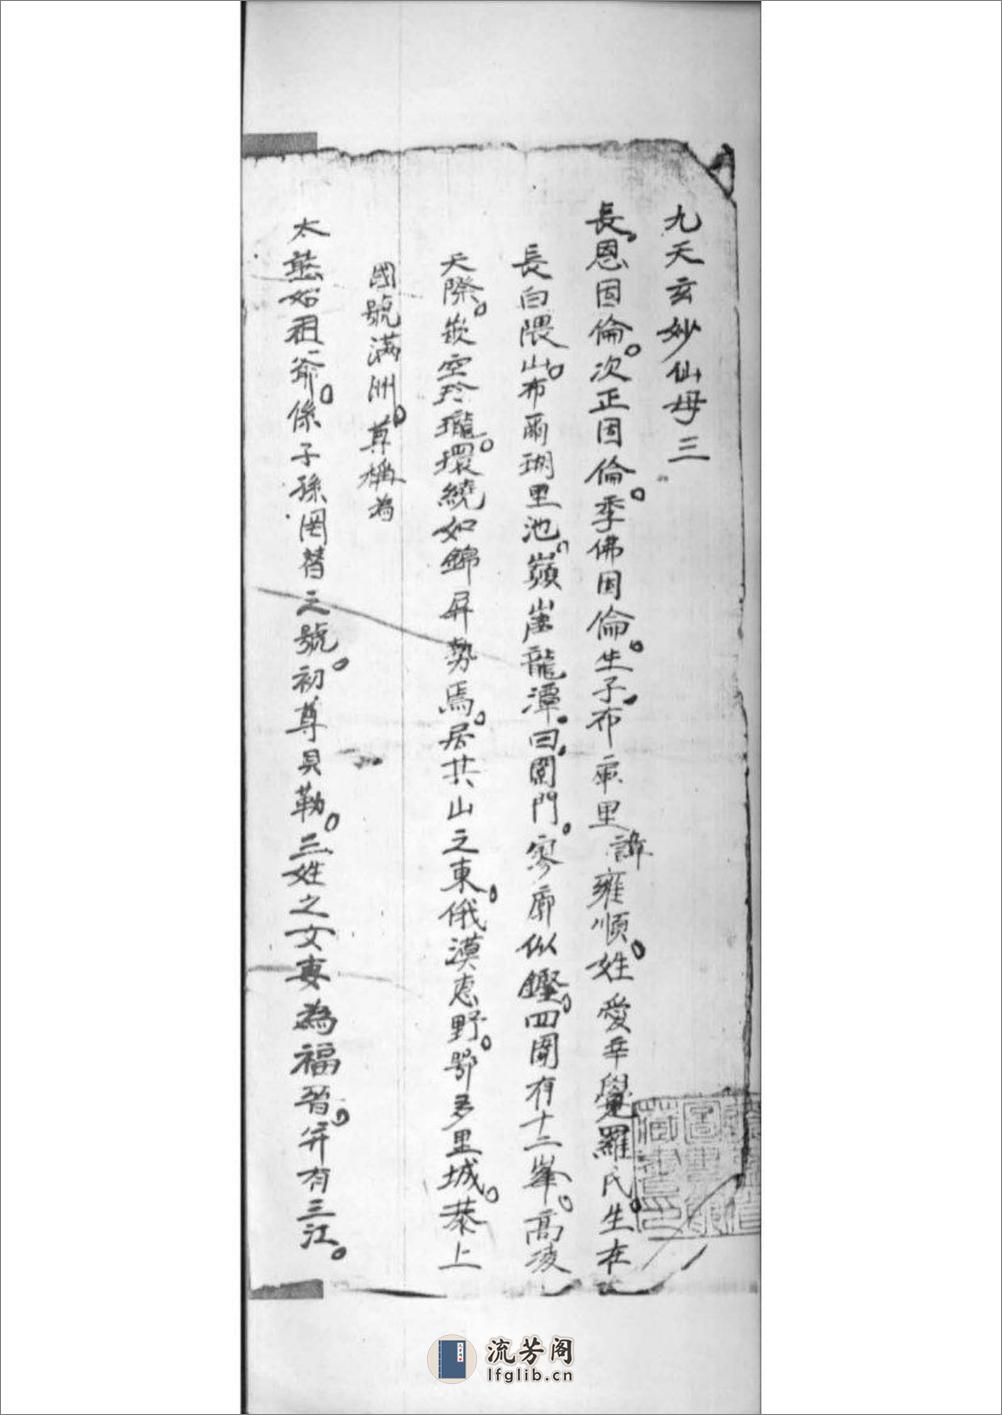 九天玄妙仙母三
長恩因倫。次正因倫。季佛因倫。生子。布庫里諱雍順。姓愛辛覺羅氏。生在
長白隈山。布爾瑚里池。巔崖龍潭。曰圍門。寥廓似鏗。四圍有十二峯。高凌
天際。嵌空玲瓏。環繞如錦屏勢焉。居共山之東。俄漠惠野。鄂多里城。恭上
國號滿洲。尊稱為
太熊始祖爺。係子孫罔替之號。初尊貝勒。三姓之女妻為福晉。并有三江。
流芳阁
lfglib.cn